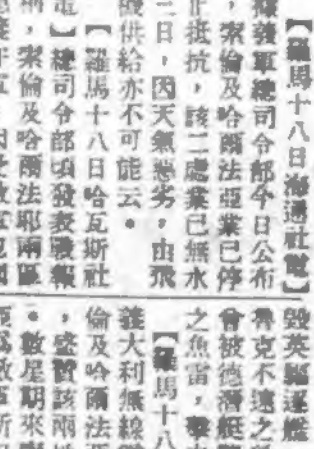 【羅馬十八日海通社電】
據義軍總司令部今日公布
，索倫及哈爾法亞業已停
止抵抗，該二處業已無水
二日，因天氣惡劣，由飛
機供給亦不可能云。
【羅馬十八日哈瓦斯社
電】總司令部頃發表戰報
稱，索倫及哈爾法耶兩區
毀英驅逐艦
魯克不遠之
曾被德潛艇
之魚雷，擊
【羅馬十八
義大利無線
倫及哈爾法
，盛贊該兩
。數星期來